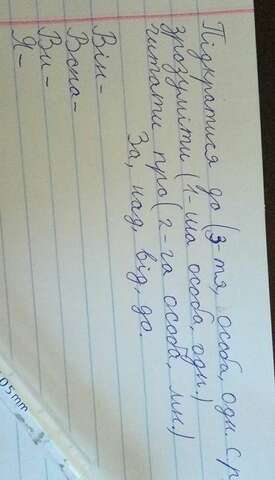 Підкратися до (3-тя, особа, одн. с.р.
зрозуміти (1-ша особа, одн.)
читати про (2-га особа, мн.)
За, над, від, до.
Він-
Вона-
Ви-
Я-
05mm